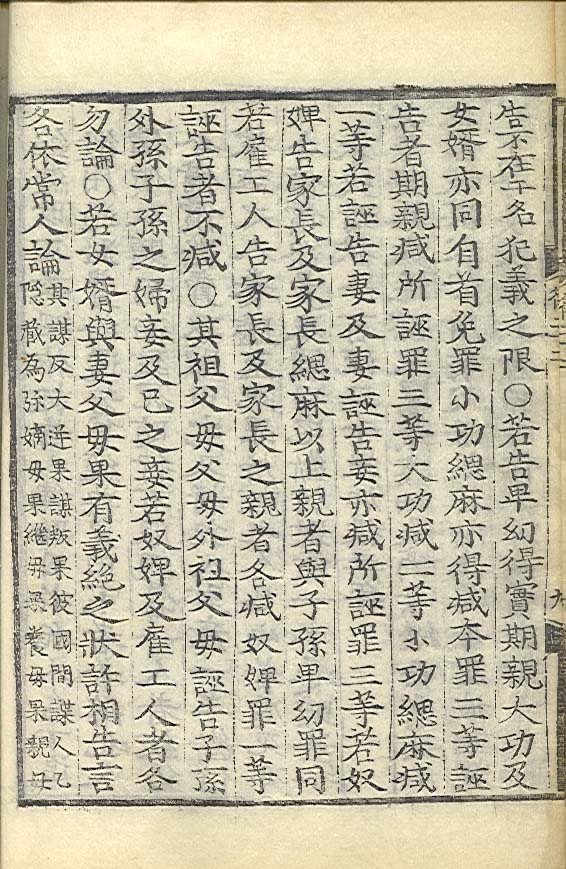 告不在干名犯義之限○若告卑幼得實期親大功及
女婿亦同自首免罪小功緦麻亦得减本罪三等誣
告者期親减所誣罪三等大功减二等小功緦麻减
一等若誣告妻及妻誣告妾亦减所誣罪三等若奴
婢告家長及家長緦麻以上親者與子孫卑幼罪同
若雇工人告家長及家長之親者各减奴婢罪一等
誣告者不减○其祖父母父母外祖父母誣告子孫
外孫子孫之婦妾及己之妾若奴婢及雇工人者各
勿論○若女婿與妻父母果有義絶之狀許相告言
各依常人論
其謀反大逆果謀叛果彼國間諜人乙
隠藏為弥嫡母果継母果養母果親母